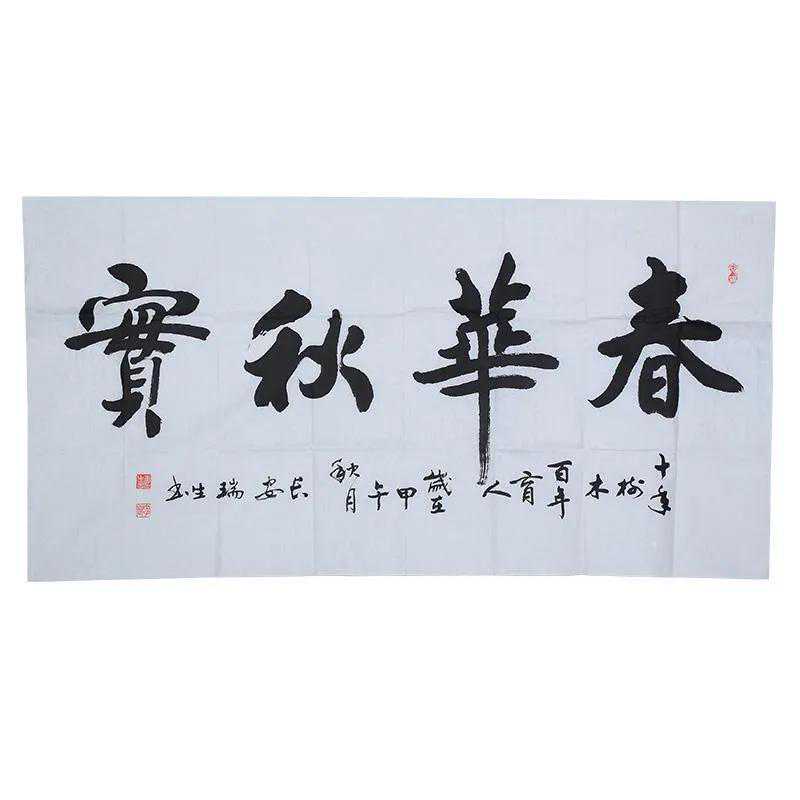 春華秋實
十年樹木百年育人歲在甲午秋月長安瑞生書